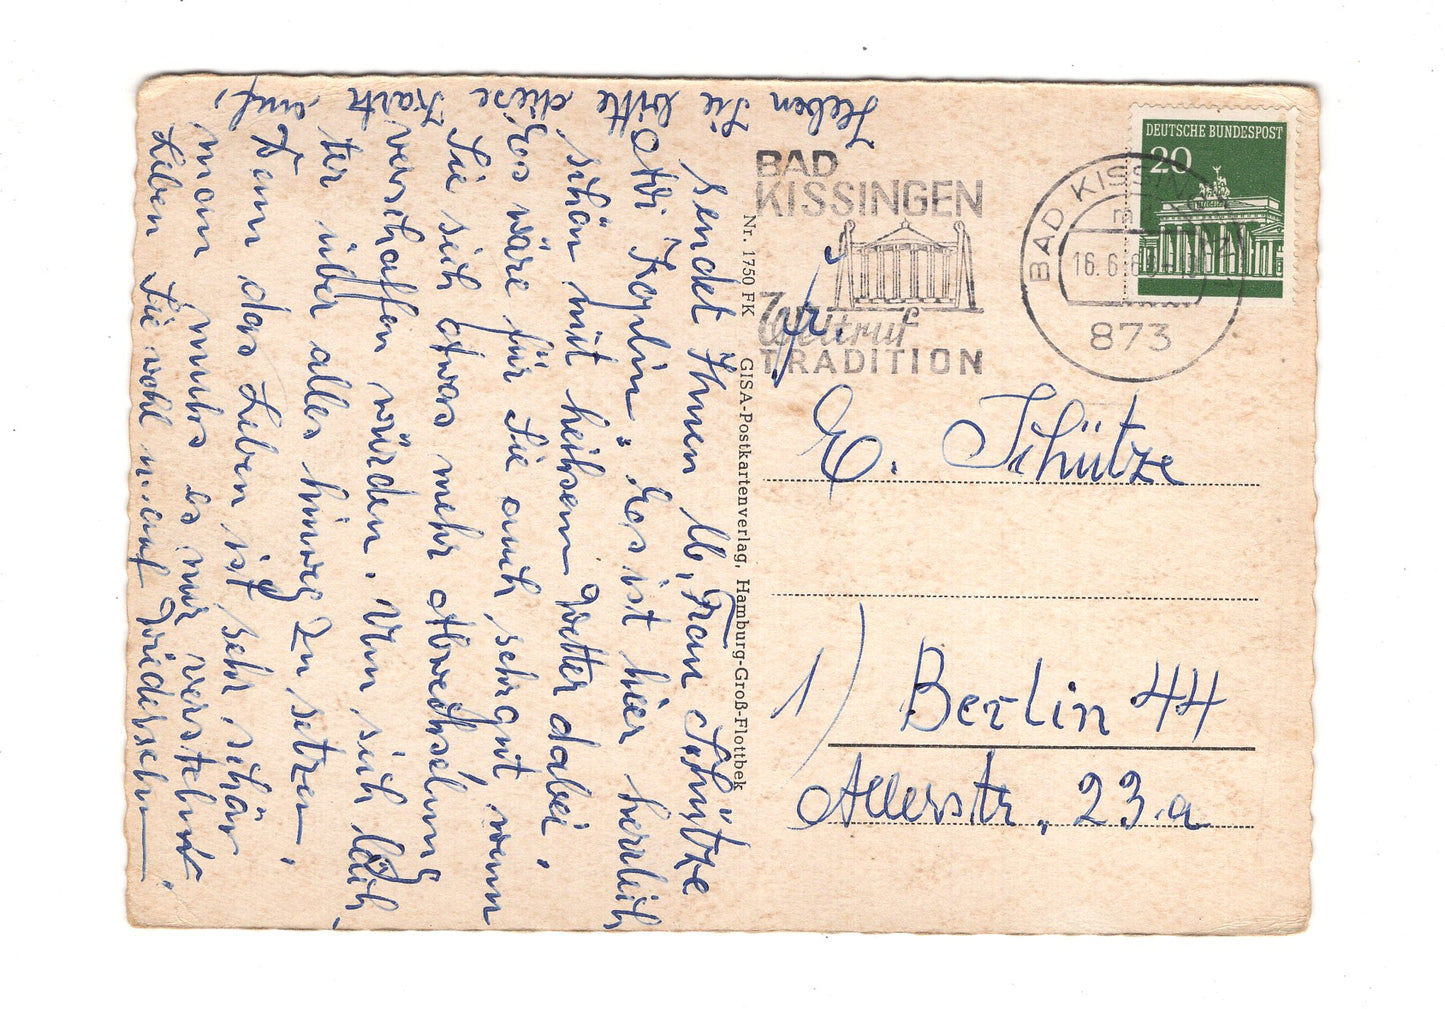 Heben Sie bitte diese Karte auf,
sendet Ihnen lb, Frau Schütze
Es ist hier herrlich
schön mit heißem Wetter dabei.
Es wäre für Sie auch sehr gut wenn
Sie sich etwas mehr Abwechselung
verschaffen würden. Um sich leich,
ter über alles hinweg zu setzen.
Denn das Leben ist sehr schön
man muss es nur verstehn.
Leben Sie wohl u. auf Wiedersehn.
Nr. 1750 FK GISA-Postkartenverlag, Hamburg-Groß-Flottbek
BAD
KISSINGEN
Weltruf
TRADITION
DEUTSCHE BUNDESPOST
20
BAD KISSINGEN
16.6.6
873
Fr.
E. Schütze
1) Berlin 44
Allerstr. 23.a